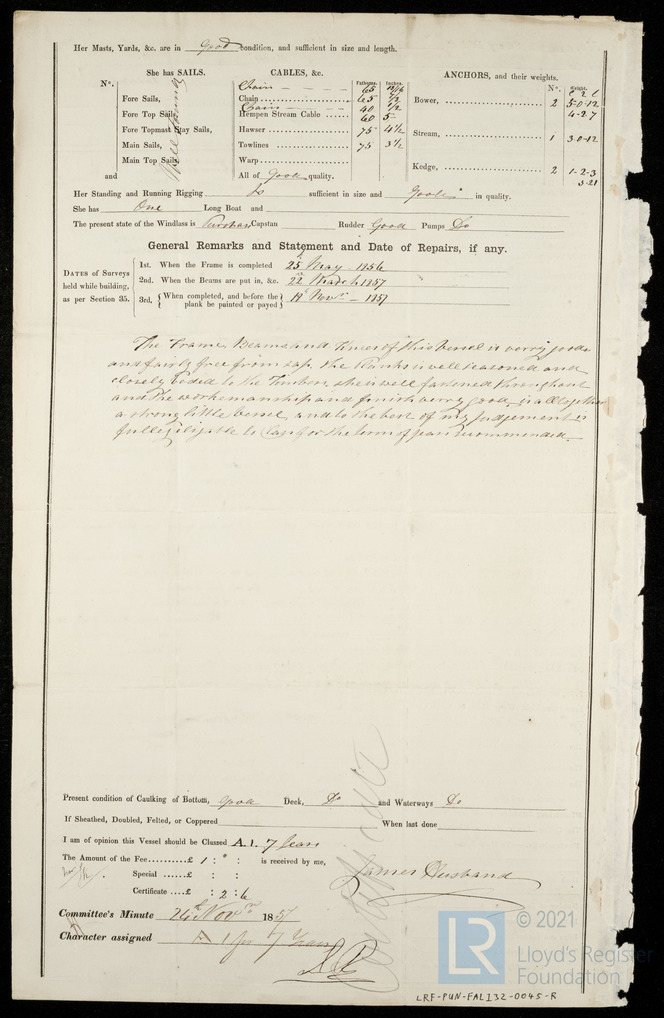 Her Masts, Yards, &c. are in Good condition, and sufficient in size and length.
She has SAILS. CABLES, &c. Fathoms. Inches. ANCHORS, and their weights.
Nº. Nº. Weight.
Well found
Fore Sails,
Fore Top Sails,
Fore Topmast Stay Sails,
Main Sails,
Main Top Sails,
and
Chain 65
Chain 65 1/2
Chain 40 1/2
Hempen Stream Cable 60 5
Hawser 75 4 1/2
Towlines 75 3 1/2
Warp
All of Good quality.
Bower, 2 5-0-12
4-2-7
Stream, 1 3-0-12
Kedge, 2 1-2-3
3-21
Her Standing and Running Rigging is sufficient in size and Good in quality.
She has One Long Boat and
The present state of the Windlass is Capstan Rudder Good Pumps Do
General Remarks and Statement and Date of Repairs, if any.
DATES of Surveys held while building, as per Section 35.
1st. When the Frame is completed 25 May 1856
2nd. When the Beams are put in, &c. 22 March 1857
3rd, When completed, and before the plank be painted or payed 19 Novr - 1857
The Frame, Beams and Knees of this Vessel is verry good
and fairly free from sap, the Planks is well seasoned and
closely to the Timbers, she is well fastened throughout
and the workemanship and finish verry good, is alltogether
a strong little vessel, and to the best of my Judgement is
fully eligible to Class for the term of years recommended.
Present condition of Caulking of Bottom, Good Deck, Do and Waterways Do
If Sheathed, Doubled, Felted, or Coppered When last done
I am of opinion this Vessel should be Classed A.1. 7 Years
The Amount of the Fee..........£ 1 : " : is received by me,
Special ......£ : :
Certificate ....£ : 2 : 6
James Husband
Committee's Minute 24th Novr 1857
Character assigned A 1 for 7 Years
© 2021
LR
Lloyd's Register
Foundation
LRF-PUN-FAL132-0045-R